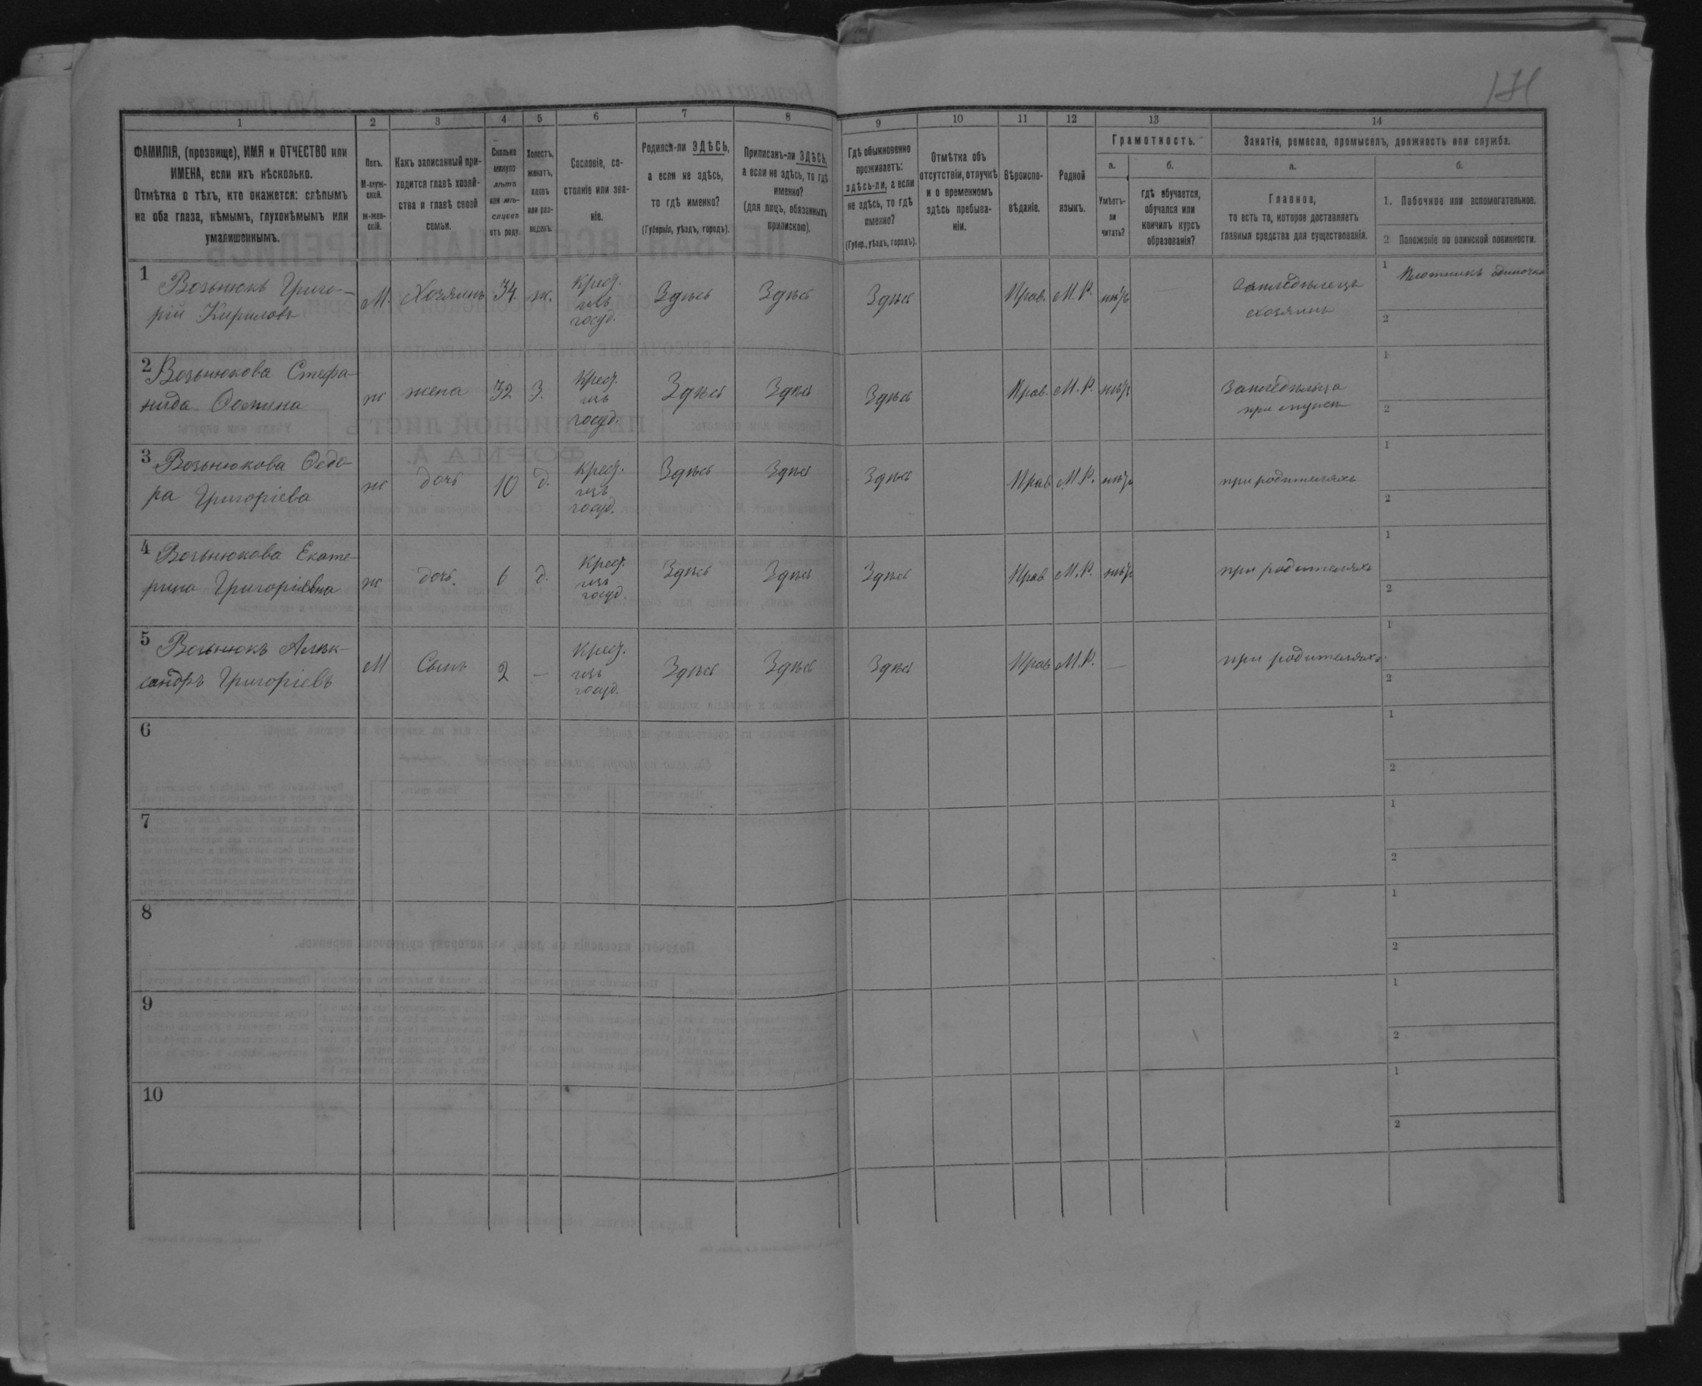 171
1 2 3 4 5 6 7 8 9 10 11 12 13 14
ФАМИЛІЯ, (прозвище), ИМЯ и ОТЧЕСТВО или
ИМЕНА, если ихъ нѣсколько.
Отмѣтка о тѣхъ, кто окажется: слѣпымъ
на оба глаза, нѣмымъ, глухонѣмымъ или
умалишеннымъ.
Полъ.
М-муж-
ской.
ж-жен-
скій.
Какъ записанный при-
ходится главѣ хозяй-
ства и главѣ своей
семьи.
Сколько
минуло
лѣтъ
или мѣ-
сяцевъ
отъ роду.
Холостъ,
женатъ,
вдовъ
или раз-
веденъ.
Сословіе, со-
стояніе или зва-
ніе.
Родился-ли ЗДѢСЬ,
а если не здѣсь,
то гдѣ именно?
(Губернія, уѣздъ, городъ).
Приписанъ-ли ЗДѢСЬ,
а если не здѣсь, то гдѣ
именно?
(для лицъ, обязанныхъ
припискою).
Гдѣ обыкновенно
проживаетъ:
здѣсь-ли, а если
не здѣсь, то гдѣ
именно?
(Губер., уѣздъ, городъ).
Отмѣтка объ
отсутствіи, отлучкѣ
и о временномъ
здѣсь пребыва-
ніи.
Вѣроиспо-
вѣданіе.
Родной
языкъ.
Грамотность.
а.
Умѣетъ-
ли
читать?
б.
гдѣ обучается,
обучался или
кончилъ курсъ
образованія?
Занятіе, ремесло, промыселъ, должность или служба.
а.
Главное,
то есть то, которое доставляетъ
главныя средства для существованія.
б.
1. Побочное или вспомогательное.
2 Положеніе по воинской повинности.
1 Возьнюкъ Григо-
рій Кириловъ
М Хозяинъ 34 ж.
Крест.
изъ
госуд.
Здѣсь Здѣсь Здѣсь Прав. М.Р. нѣтъ
Земледѣлецъ
хозяинъ
1 Плотникъ одиночка
2
2 Возьнюкова Стефа-
нида
ж жена 32 З.
Крест.
изъ
госуд.
Здѣсь Здѣсь Здѣсь Прав. М.Р. нѣтъ
Земледѣлица
при мужѣ
1
2
3 Возьнюкова Ѳедо-
ра Григоріева
ж дочь 10 д.
Крест.
изъ
госуд.
Здѣсь Здѣсь Здѣсь Прав М.Р. нѣтъ
при родителяхъ
1
2
4 Возьнюкова Екате-
рина Григоріевна
ж дочь. 6 д.
Крест.
изъ
госуд.
Здѣсь Здѣсь Здѣсь Прав М.Р. нѣтъ
при родителяхъ
1
2
5 Возьнюкъ Алек-
сандръ Григоріевъ
М Сынъ 2 —
Крест.
изъ
госуд.
Здѣсь Здѣсь Здѣсь Прав М.Р. —
при родителяхъ
1
2
6
1
2
7
1
2
8
1
2
9
1
2
10
1
2